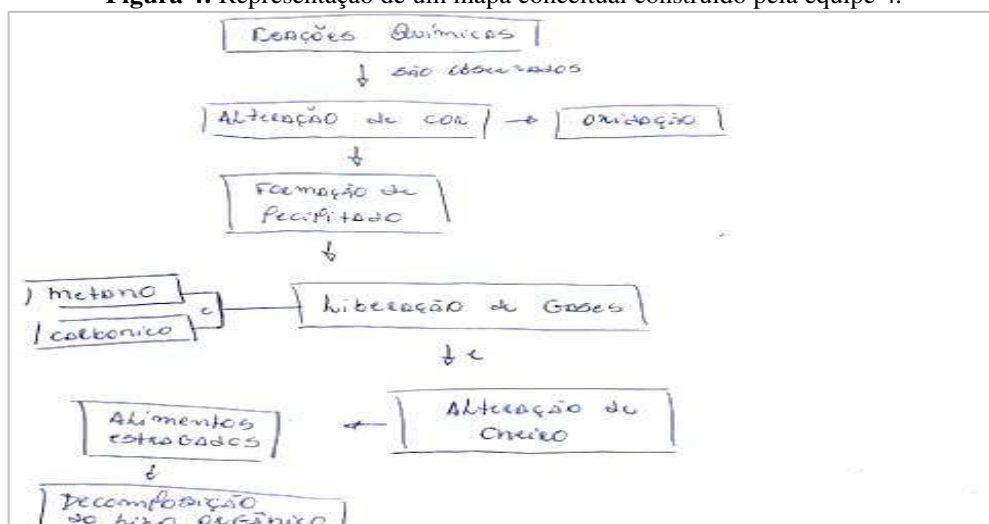 Figura 4. Representação de um mapa conceitual construído pela equipe 4.
Reações Químicas
são observados
Alteração de cor
oxidação
Formação de
Pecipitado
metano
e
carbonico
Liberação de Gases
e
Alteração de
Cheiro
Alimentos
estragados
e
Decomposição
do lixo orgânico